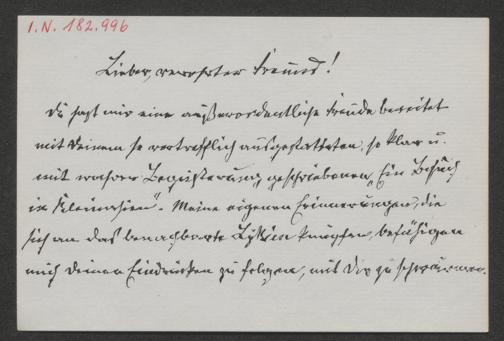 I.N. 182.996
Lieber, verehrter Freund!
Du hast mir eine außerordentliche Freude bereitet
mit Deinem so vortrefflich ausgestatteten, so klar u.
mit wahrer Begeisterung geschriebenen „Ein Besuch
in Kleinasien“. Meine eigenen Erinnerungen, die
sich an das benachbarte Lykien knüpfen, befähigen
mich Deinen Eindrücken zu folgen, mit Dir zu schwärmen.